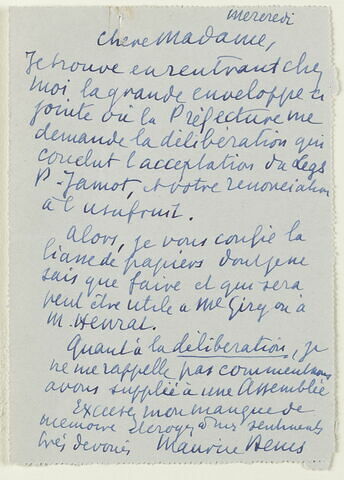 mercredi
chère Madame,
Je trouve en rentrant chez
moi la grande enveloppe ci
jointe où la Préfecture me
demande la délibération qui
conclut l'acceptation du Legs
P. Jamot, et votre renonciation
à l'usufruit.
Alors, je vous confie la
liasse de papiers dont je ne
sais que faire et qui sera
peut être utile à Me Giry ou à
M. Henrat.
Quant à la délibération, je
ne me rappelle pas comment nous
avons suppléé à une Assemblée
Excusez mon manque de
mémoire et croyez à mes sentiments
très dévoués Maurice Denis